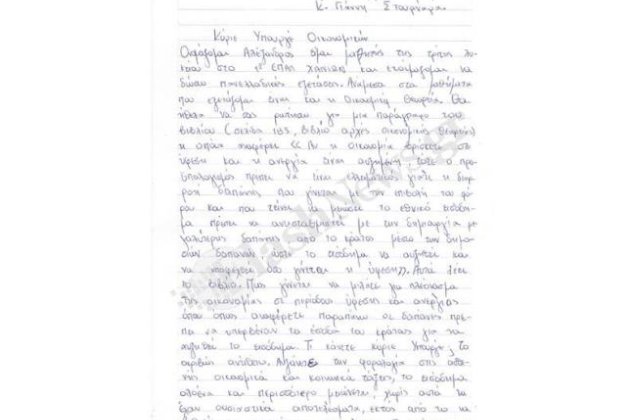 κ. Γιάννη Στουρνάρα
Κύριε Υπουργέ Οικονομικών
Ονομάζομαι Αλέξανδρος είμαι μαθητής της τρίτης λυ-
κείου στο 1ο ΕΠΑΛ και ετοιμάζομαι να
δώσω πανελλαδικές εξετάσεις. Ανάμεσα στα μαθήματα
που εξετάζομαι είναι και η Οικονομική Θεωρία. Θα
ήθελα να σας για μία παράγραφο του
βιβλίου (σελίδα 165, βιβλίο αρχές οικονομικής θεωρίας)
η οποία αναφέρει << Αν η οικονομία βρίσκεται σε
ύφεση και η ανεργία είναι αυξημένη, τότε ο προ-
ϋπολογισμός πρέπει να είναι ελλειμματικός γιατί η
δαπάνης που γίνεται με την επιβολή των φό-
ρων και που τείνει να μειώσει το εθνικό εισόδη-
μα πρέπει να αντισταθμιστεί με την δημιουργία με-
γαλύτερης δαπάνης από το κράτος μέσω των δημο-
σίων δαπανών ώστε το εισόδημα να αυξηθεί και
να όσο γίνεται η ύφεση>>. Αυτά λέει
το βιβλίο. Πως γίνεται να μιλάτε για πλεόνασμα
της οικονομίας σε περίοδου ύφεσης και ανεργίας
όταν όπως αναφέρετε παραπάνω οι δαπάνες πρέ-
πει να υπερβαίνουν τα έσοδα του κράτους για να
αυξηθεί το εισόδημα. Τι κάνετε κύριε Υπουργέ, το
ακριβώς αντίθετο. Αυξάνετε την φορολογία στις
οικονομικά και κοινωνικά τάξεις, το εισόδημα
ολοένα και περισσότερο μειώνεται, χωρίς αυτά να
έχουν ουσιαστικά αποτελέσματα, εκτός από το να
FlashNews.gr